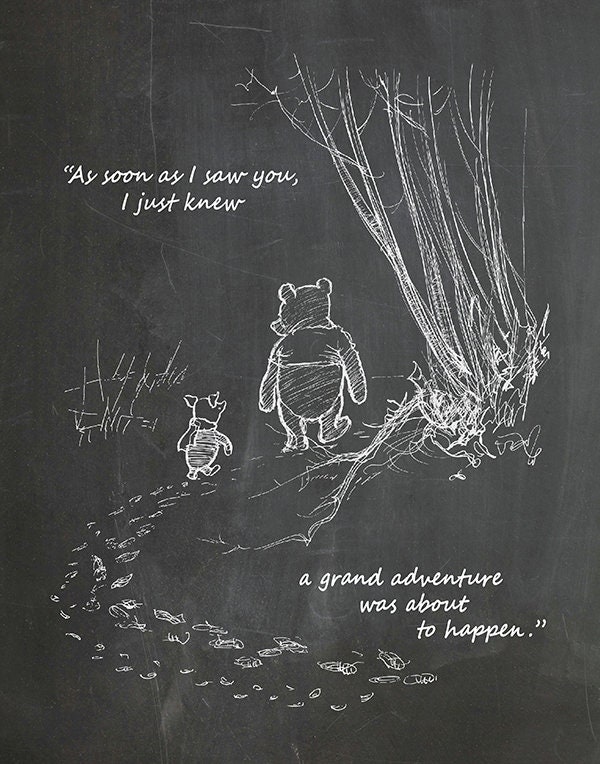 “As soon as I saw you,
I just knew
a grand adventure
was about
to happen.”